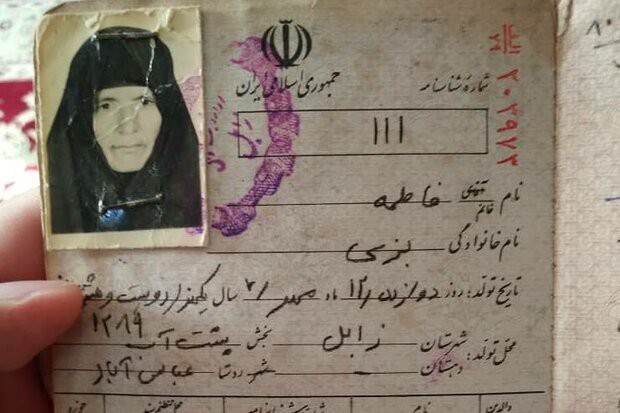 جمهوری اسلامی ایران
شمارهٔ شناسنامه
۱۱۱
الف
۲۹
۲۰۲۹۷۲
نام آقای خانم فاطمه
نام خانوادگی بزی
تاریخ تولد: روز دوازده / ۱۲ ماه مهر / ۷ سال یکهزار / دویست و هشتاد
۱۲۸۹
محل تولد: شهرستان زابل بخش پشت آب
دهستان – شهر روستا عباس آباد
والدین نام